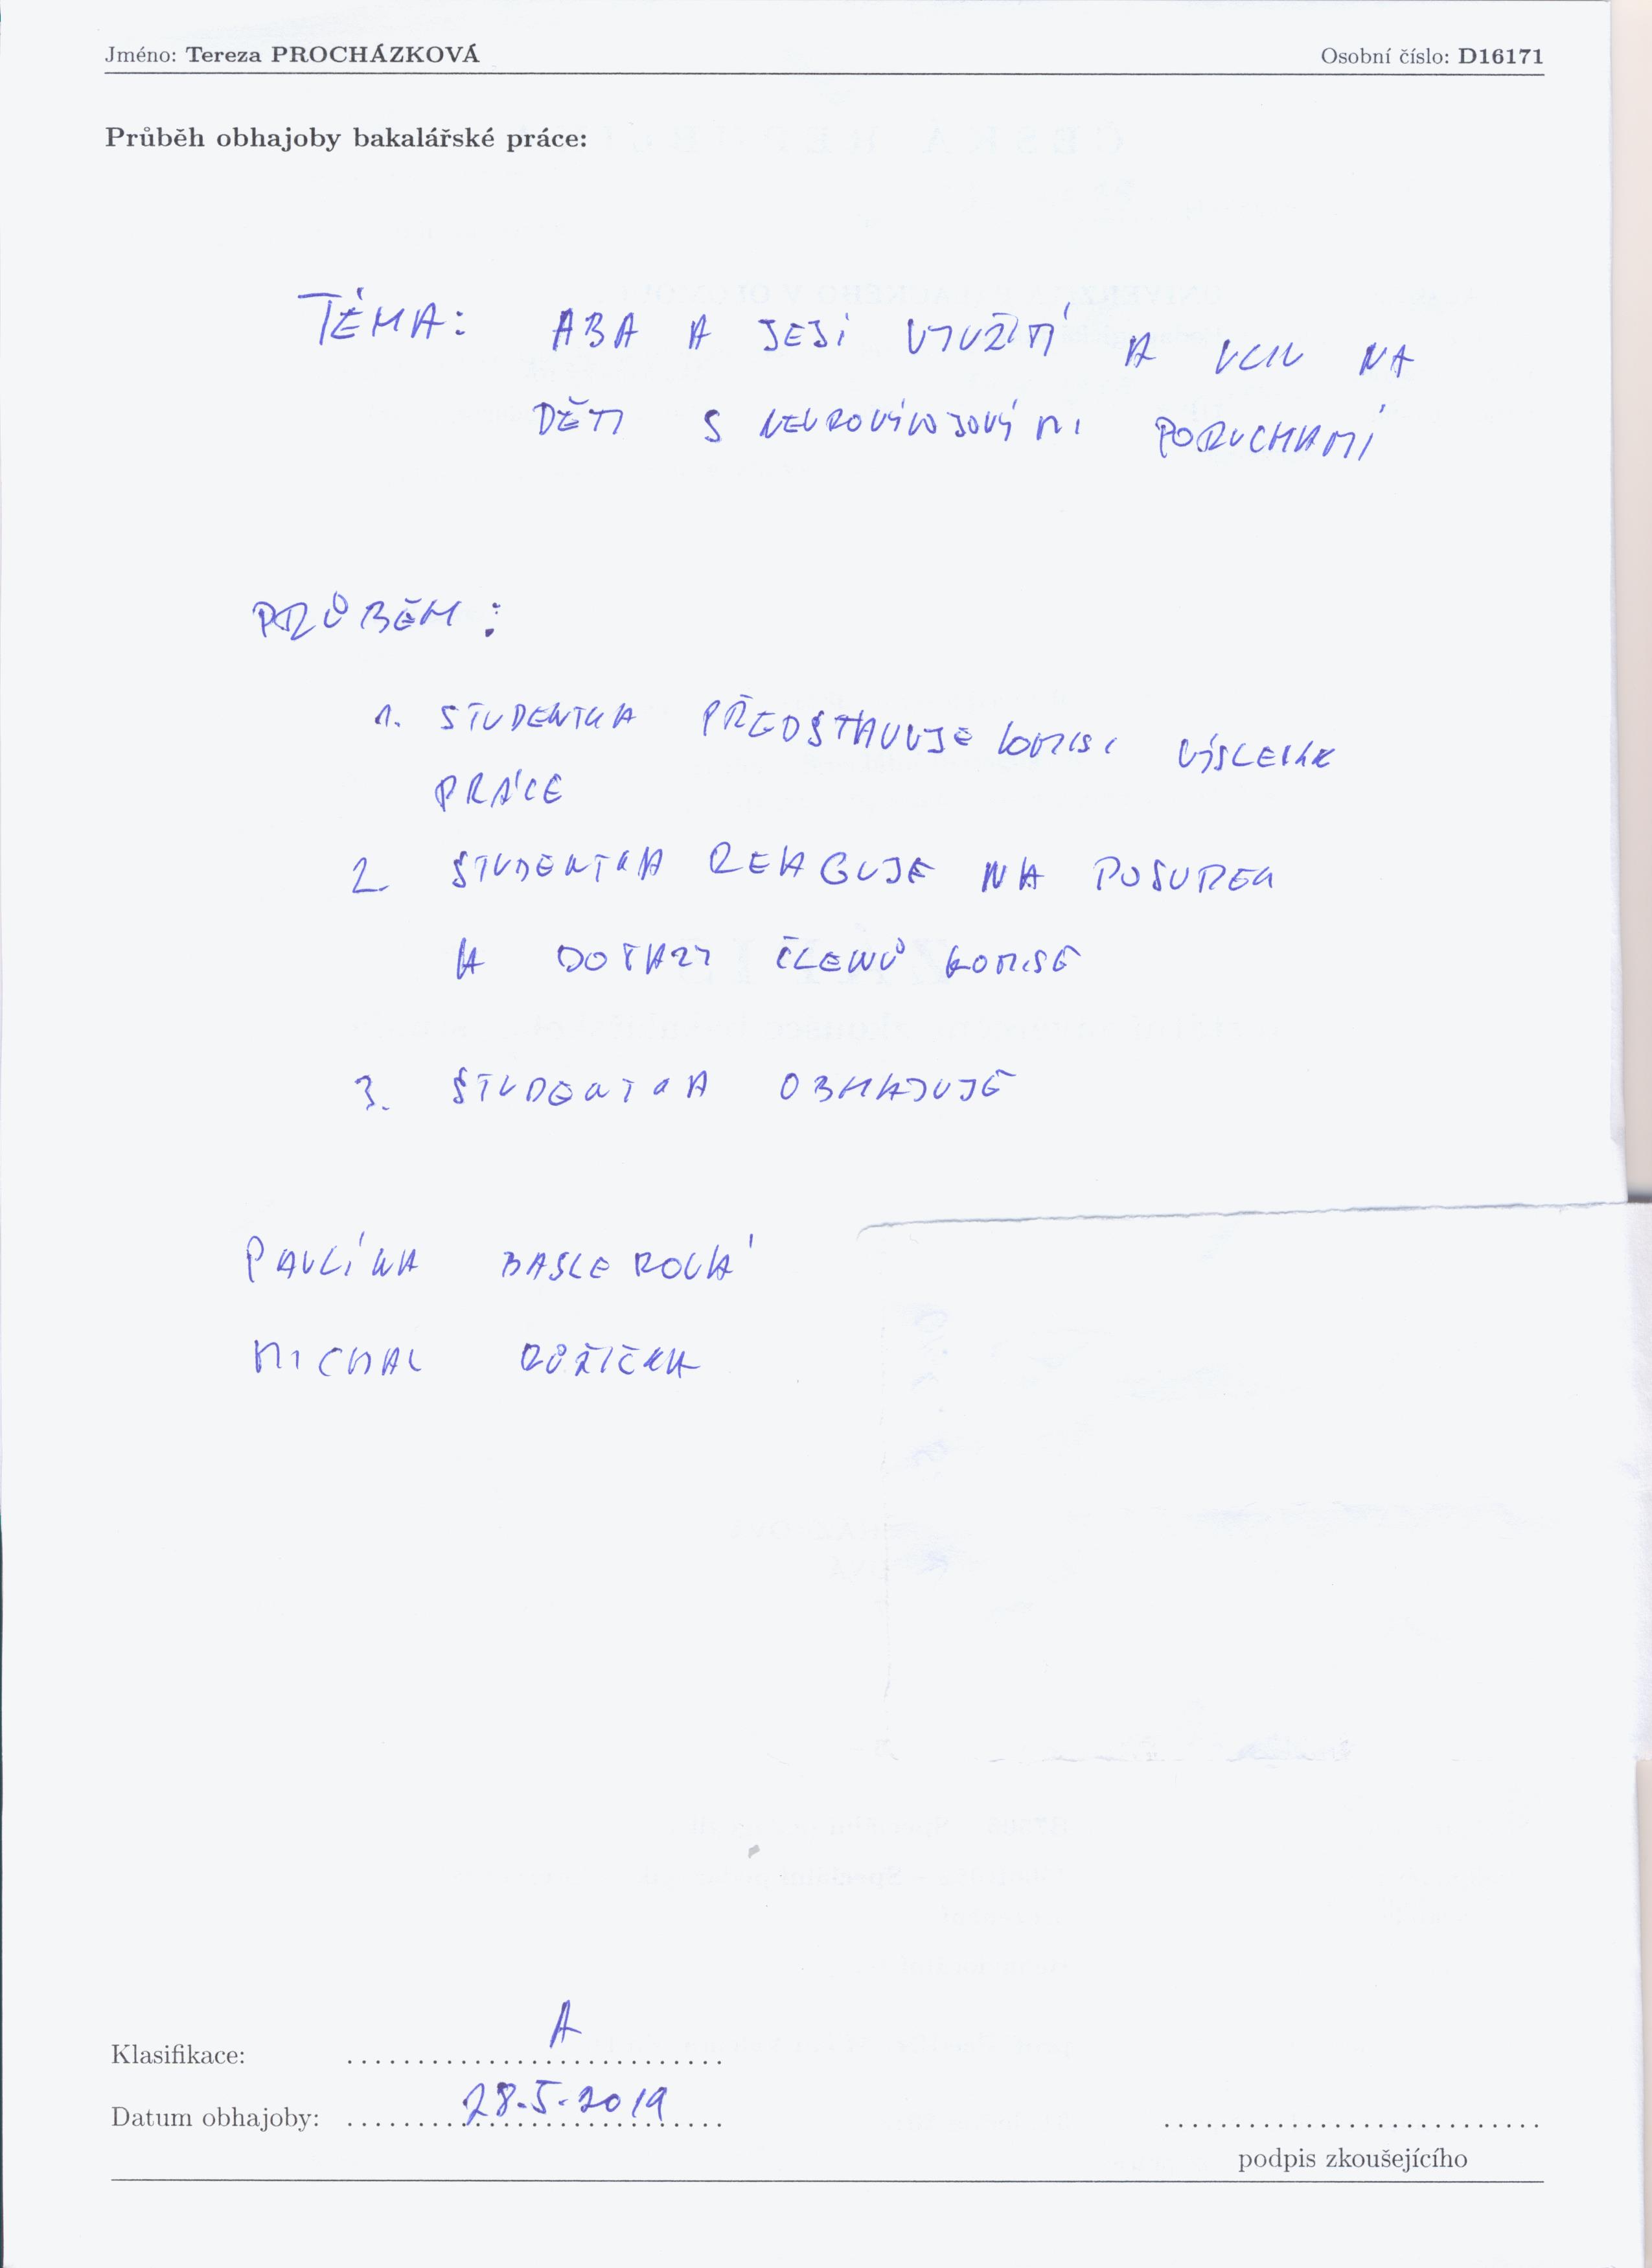 Jméno: Tereza PROCHÁZKOVÁ Osobní číslo: D16171
Průběh obhajoby bakalářské práce:
TÉMA: ABA A JEJÍ VYUŽITÍ A VLIV NA
DĚTI S NEUROVÝVOJOVÝMI PORUCHAMI
PRŮBĚH:
1. STUDENTKA PŘEDSTAVUJE KOMISI
PRÁCE
2. STUDENTKA REAGUJE NA POSUDEK
A DOTAZY ČLENŮ KOMISE
3. STUDENTKA OBHAJUJE
PAVLÍNA BASLEROVÁ
MICHAL RŮŽIČKA
Klasifikace: A
Datum obhajoby: 28.5.2019
podpis zkoušejícího